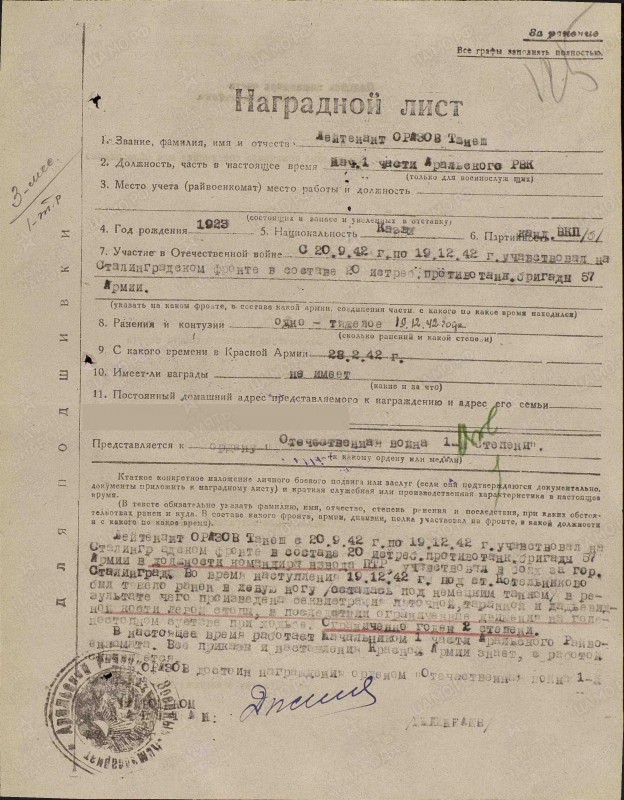 За ранение
Все графы заполнять полностью.
Наградной лист
1. Звание, фамилия, имя и отчеств Лейтенант ОРАЗОВ Танеш
2. Должность, часть в настоящее время Нач.1 части Аральского РВК
(только для военнослужащих)
3. Место учета (райвоенкомат) место работы и должность
3-мес.
(состоящих в запасе и уволенных в отставку)
4. Год рождения 1923 5. Национальность Казах 6. Партийность канд. ВКП/б/
7. Участие в Отечественной войне С 20.9.42 г. по 19.12.42 г. участвовал на
Сталинградском фронте в составе 20 истреб.противотанк.бригады 57
Армии.
(указать на каком фронте, в состава какой армии, соединения части, с какого по какое время находился)
8. Ранения и контузии одно - тяжелое 19.12.42 года
(сколько ранений и какой степени)
9 С какого времени в Красной Армии 28.2.42 г.
10. Имеет-ли награды не имеет
(какие и за что)
11. Постоянный домашний адрес представляемого к награждению и адрес его семьи
Представляется к ордену "Отечественная война 1-й степени".
(к какому ордену или медали)
ДЛЯ ПОДШИВКИ
Краткое конкретное изложение личного боевого подвига или заслуг (если они подтверждаются документально,
документы приложить к наградному листу) и краткая служебная или производственная характеристика в настоящее
время.
(В тексте обязательно указать фамилию, имя, отчество, степень ранения и последствия, при каких обстоя-
тельствах ранен и куда. В состава какого фронта, армии, дивизии, полка участвовал на фронте, в какой должности
и с какого по какое время).
Лейтенант ОРАЗОВ Танеш с 20.9.42 г. по 19.12.42 г. участвовал на
Сталинградском фронте в составе 20 истреб.противотанк.бригады 57
Армии в должности командира взвода ПТР участвовал в боях за гор.
Сталинград. Во время наступления 19.12.42 г. под ст. Котельниково
был тяжело ранен в левую ногу /осталась под немецким танком/ в ре-
зультате чего произведена
ной кости левой стопы, в последствии ограничение движения на голе-
ностопном суставе при ходьбе. Ограниченно годен 2 степени.
В настоящее время работает Начальником 1 части Аральского Райво-
енкомата. Все приказы и наставления Красной Армии знает, в работе
ОРАЗОВ достоин награждения орденом "Отечественная война 1-й